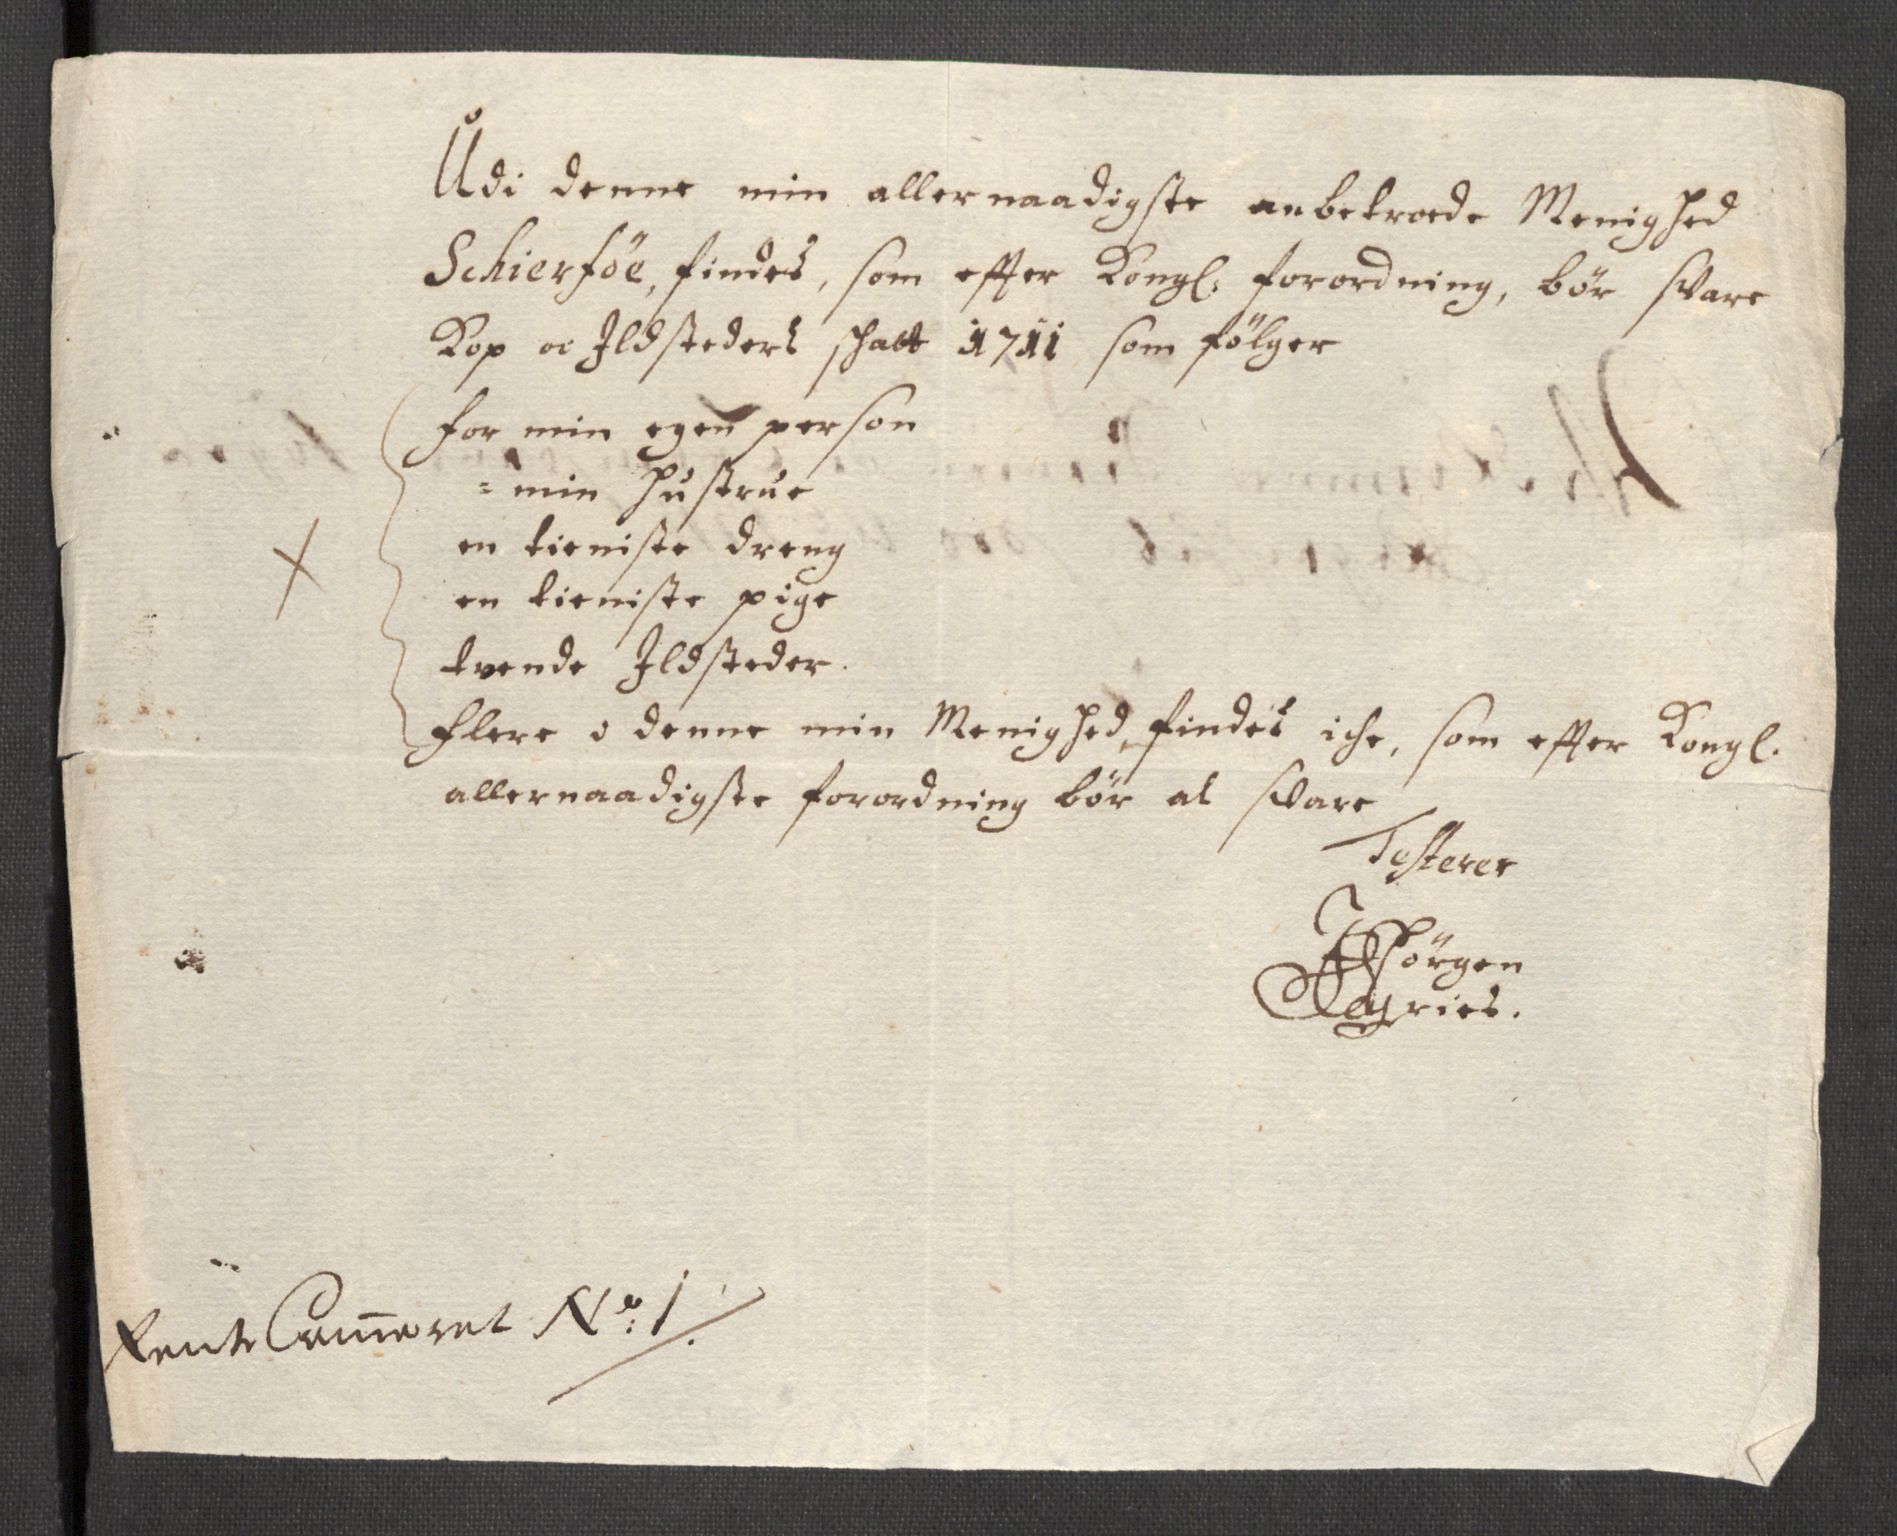 Udi denne min allernaadigste anbetroede Menighed
Schierföe, findes, som effter Kongl: forordning, bör svare
Kop oc Ildsteders schatt 1711 som fölger
for min egen person
= min Hustrue
en tieniste dreng
en tieniste pige
tvende Ildsteder.
Flere i denne min Menighed findes iche, som effter Kongl.
allernaadigste forordning bör at svare
Testerer
Jörgen
Rente Cammeret No: 1